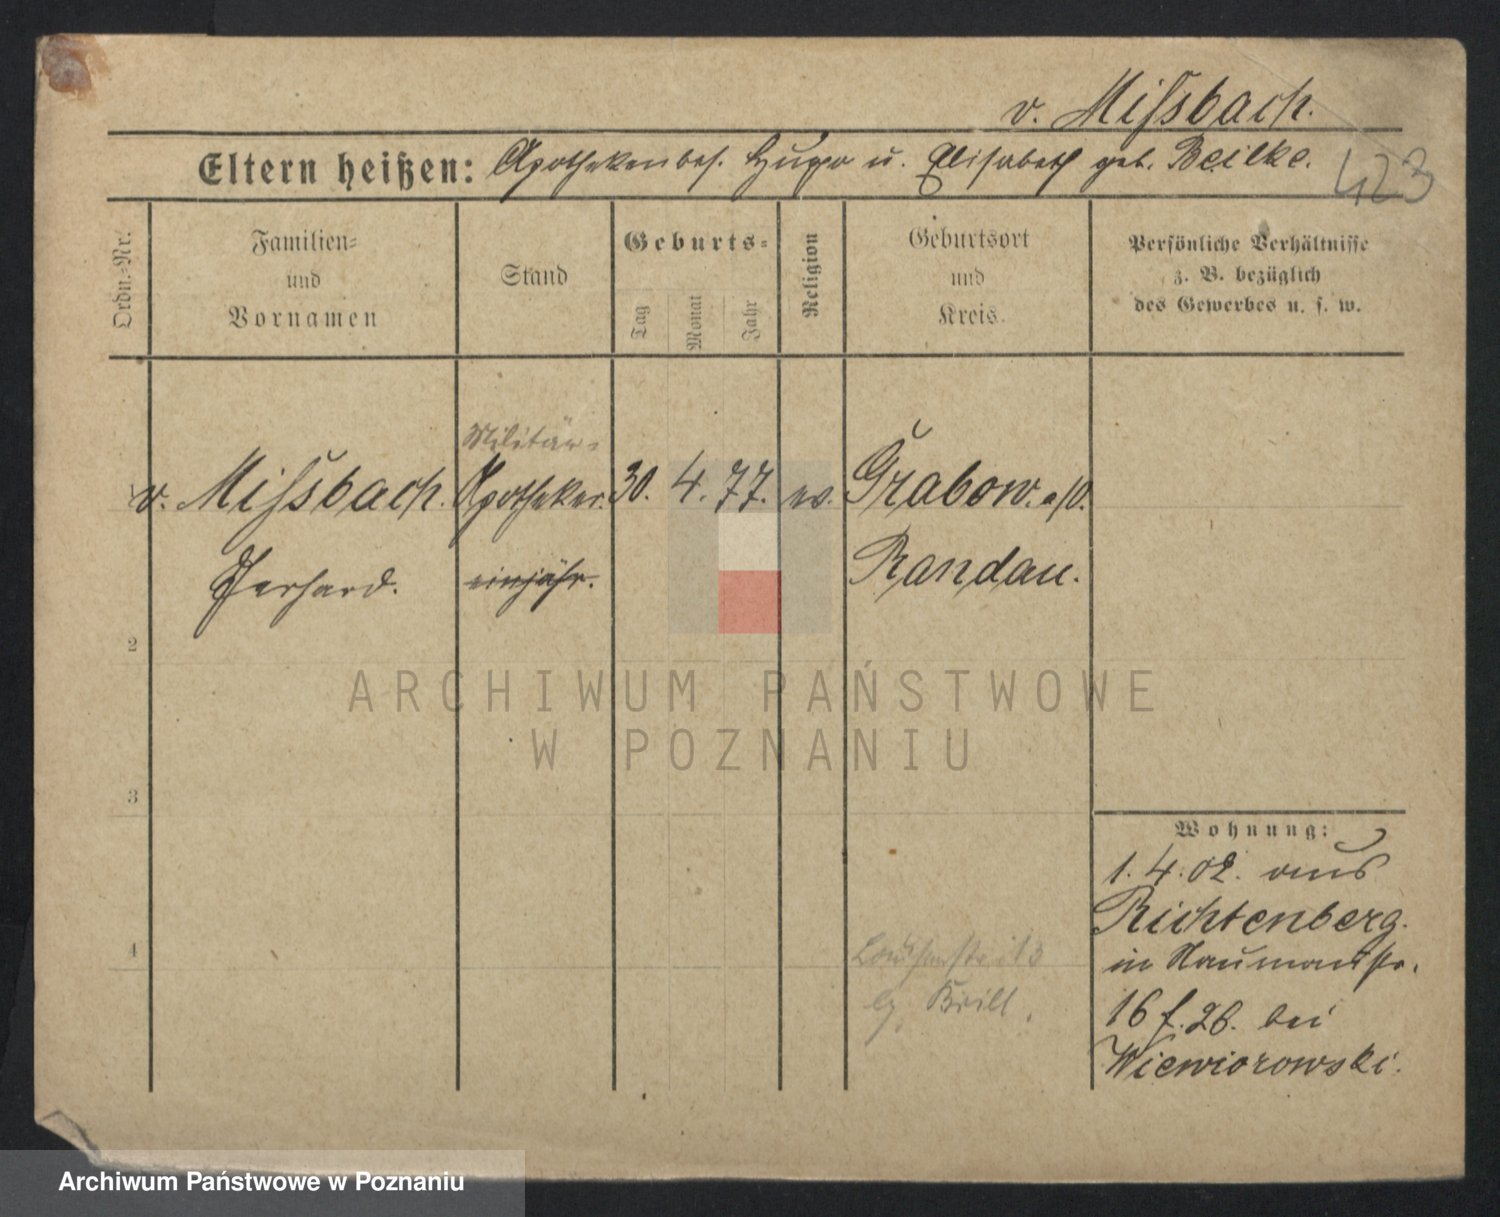 v. Missbach.
Eltern heißen: Apothekenbes. Hugo u. Elisabeth geb. Beilke.
423
Ordn.-Nr.
Familien-
und
Vornamen
Stand
Geburts-
Tag
Monat
Jahr
Religion
Geburtsort
und
Kreis.
Persönliche Verhältnisse
z. B. bezüglich
des Gewerbes u. s. w.
Militär-
v. Missbach. Apotheker. 30. 4. 77. ev. Grabow. a/O.
Gerhard. einjähr. Randau.
2
ARCHIWUM PAŃSTWOWE
W POZNANIU
3
Wohnung:
1. 4. 02. aus
Richtenberg.
4
in Naumannstr.
16 f. 26. bei
Krill.
Wiewiorowski.
Archiwum Państwowe w Poznaniu